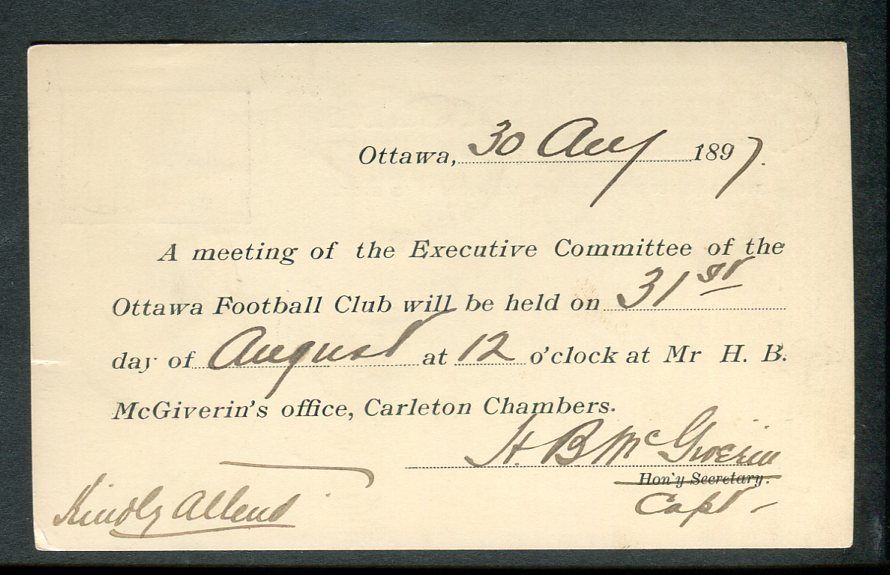 Ottawa, 30 Aug 1897.
A meeting of the Executive Committee of the
Ottawa Football Club will be held on 31st
day of August at 12 o'clock at Mr H. B.
McGiverin's office, Carleton Chambers.
H. B McGiverin
Hon'y Secretary.
Capt -
Kindly attend